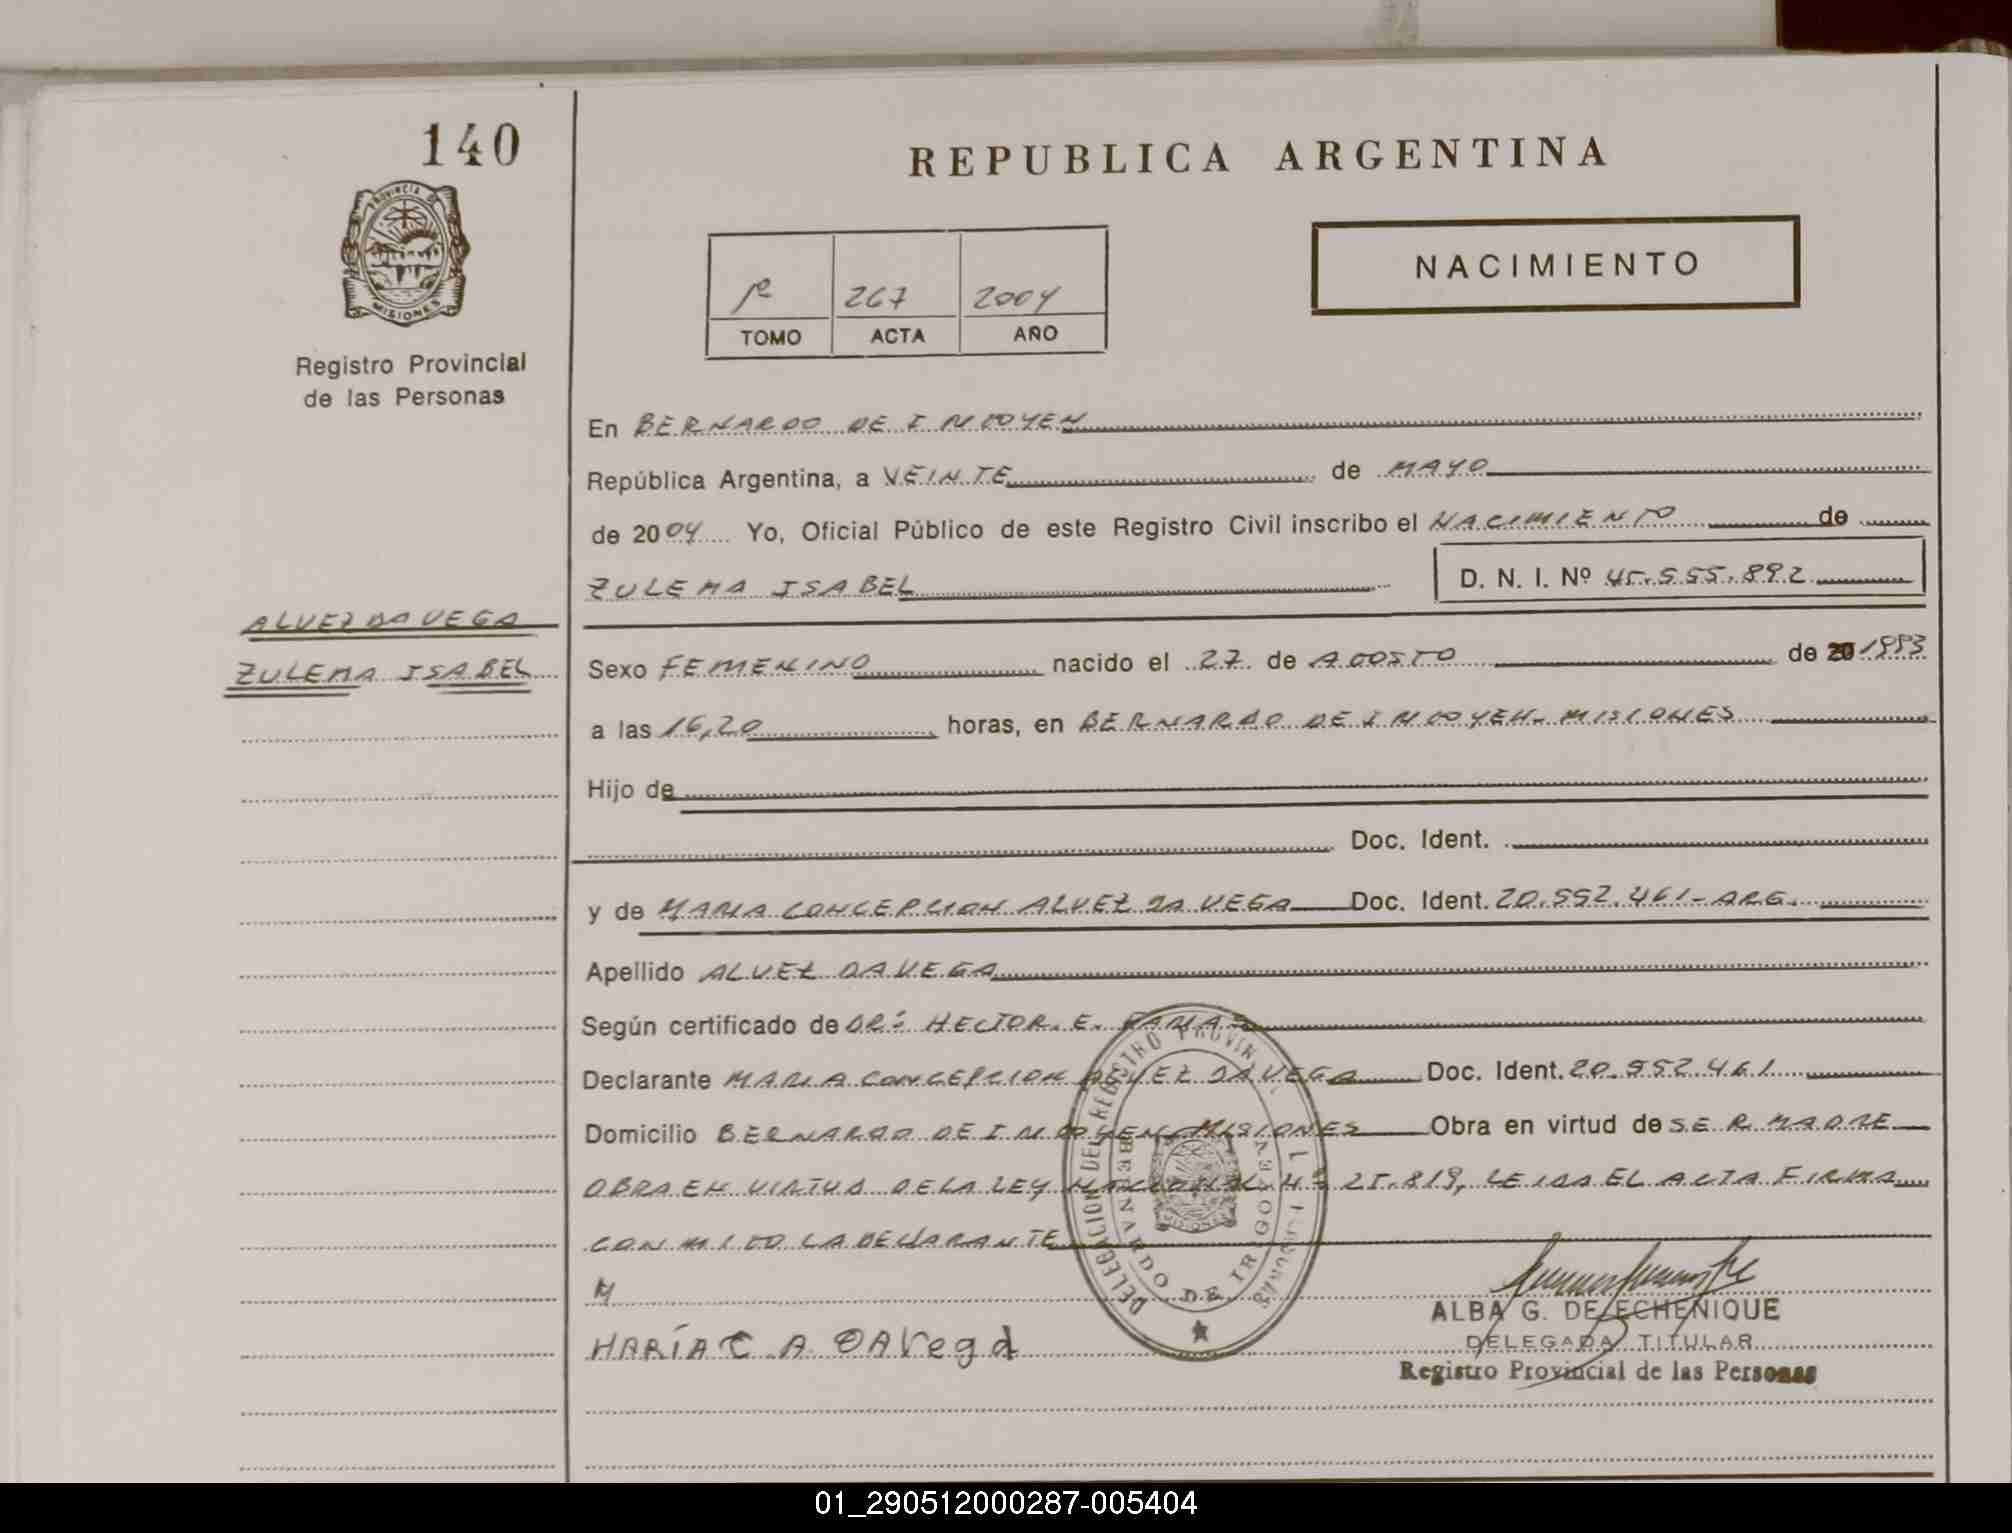 140
REPUBLICA ARGENTINA
PROVINCIA DE
MISIONES
NACIMIENTO
267 2004
TOMO ACTA AÑO
Registro Provincial
de las Personas
En BERNARDO DE IRIGOYEN
República Argentina, a VEINTE de MAYO
de 2004 Yo, Oficial Público de este Registro Civil inscribo el NACIMIENTO de
ZULEMA ISABEL D. N. I. Nº 45.555.892
ALVEZ DA VEGA
ZULEMA ISABEL
Sexo FEMENINO nacido el 27 de AGOSTO de 20 1993
a las 16,20 horas, en BERNARDO DE IRIGOYEN. MISIONES
Hijo de
Doc. Ident.
y de MARIA CONCEPCION ALVEZ DA VEGA Doc. Ident. 20.552.461-ARG.
Apellido ALVEZ DA VEGA
Según certificado de DR: HECTOR. E.
Declarante MARIA CONCEPCION ALVEZ DA VEGA Doc. Ident. 20.552.461
Domicilio BERNARDO DE IRIGOYEN. MISIONES Obra en virtud de SER MADRE
OBRA EN VIRTUD DE LA LEY NACIONAL Nº 25.819, LEIDA EL ACTA FIRMA
CONMIGO LA DECLARANTE
MARÍA C. A. DAVega
DELEGACION DEL REGISTRO PROVINCIAL PERSONAS
BERNARDO DE IRIGOYEN
MISIONES
ALBA G. DE ECHENIQUE
DELEGADA TITULAR
Registro Provincial de las Personas
01_290512000287-005404